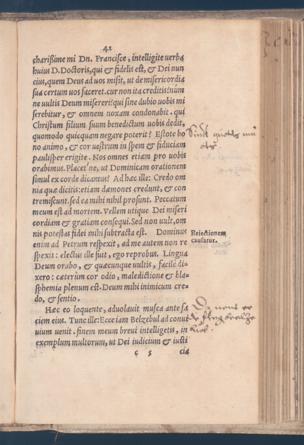 42
charißime mi Dn. Francisce, intelligite uerba
huius D. Doctoris, qui & fidelis est, & Dei nun
cius, quem Deus ad uos misit, ut de misericordia
sua certum uos faceret. cur non ita creditis? num
ne uultis Deum misereri? qui sine dubio uobis mi
serebitur, & omnem noxam condonabit. qui
Christum filium suum benedictum uobis dedit,
quomodo quicquam negare poterit? Estote bo
no animo, & cor uestrum in spem & fiduciam
paulisper erigite. Nos omnes etiam pro uobis
orabimus. Placet'ne, ut Dominicam orationem
simul ex corde dicamus? Ad hæc ille: Credo om
nia quæ dicitis: etiam dæmones credunt, & con
tremiscunt. sed ea mihi nihil prosunt. Peccatum
meum est ad mortem. Vellem utique Dei miseri
cordiam & gratiam consequi. Sed non uult, om
nis potestas fidei mihi subtracta est. Dominus
enim ad Petrum respexit, ad me autem non re
spexit: electus ille fuit, ego reprobus. Lingua
Deum orabo, & quæcunque uultis, facile di-
xero: cæterum cor odio, maledictione & bla-
sphemia plenum est. Deum mihi inimicum cre-
do, & sentio.
Reiectionem
causatur.
Hæc eo loquente, aduolauit musca ante fa
ciem eius. Tunc ille: Ecce iam Belzebul ad conui
uium uenit. finem meum breui intelligetis, in
exemplum multorum, ut Dei iudicium & iusti
c 5 cia